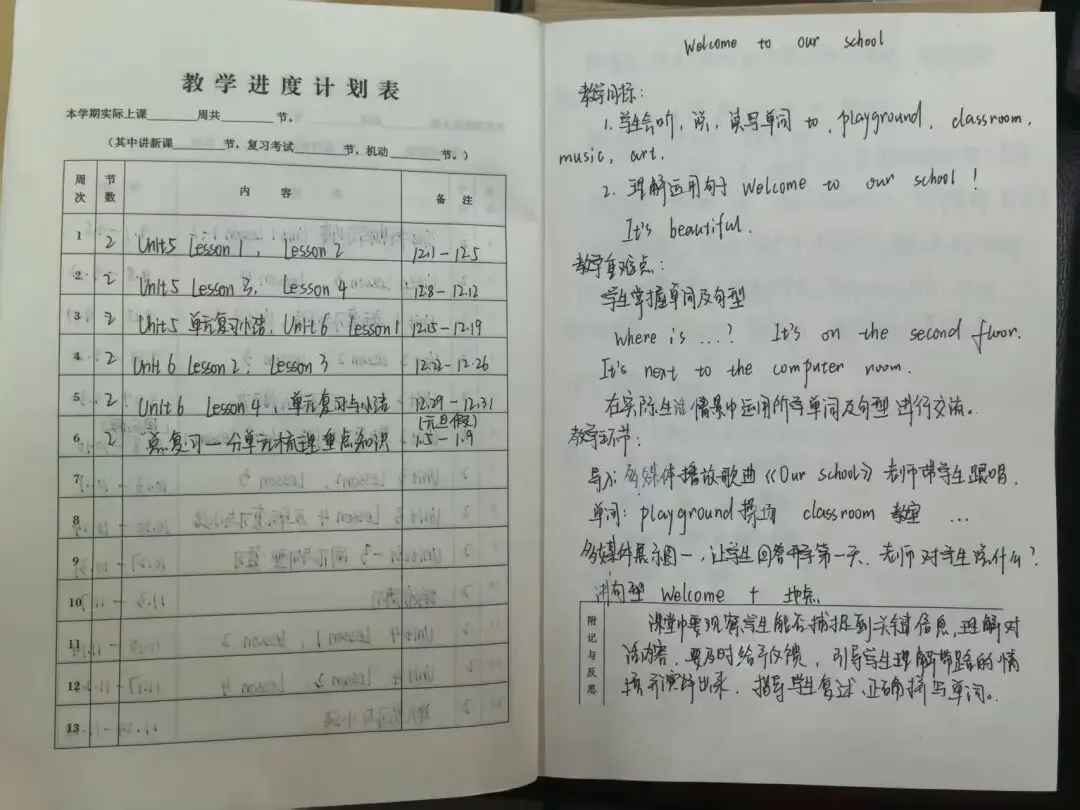 教学进度计划表
本学期实际上课______周共______节。
(其中讲新课______节,复习考试______节,机动______节。)
周次 节数 内容 备注
1 2 Unit5 Lesson 1, Lesson 2 12.1—12.5
2 2 Unit5 Lesson 3, Lesson 4 12.8—12.12
3 2 Unit5 单元复习小结, Unit 6 Lesson 1 12.15—12.19
4 2 Unit 6 Lesson 2, Lesson 3 12.22—12.26
5 2 Unit 6 Lesson 4, 单元复习与小结 12.29—12.31
(元旦假)
6 2 总复习—分单元梳理重点知识 1.5—1.9
7
8
9
10
11
12
13
Welcome to our school
教学目标:
1. 学生会听,说,读写单词 to, playground, classroom,
music, art.
2. 理解运用句子 Welcome to our school!
It's beautiful.
教学重难点:
学生掌握单词及句型
Where is ...? It's on the second floor.
It's next to the computer room.
在实际生活情景中运用所学单词及句型进行交流。
教学环节:
导入:多媒体播放歌曲《Our school》老师带学生跟唱.
单词: playground 操场 classroom 教室 ...
多媒体展示图一,让学生回答开学第一天,老师对学生说什么?
讲句型 Welcome + 地点
附记与反思
课堂中要观察学生能否捕捉到关键信息,理解对
话内容,要及时给予反馈,引导学生理解带路的情
境并演绎出来,指导学生复述,正确拼写单词。